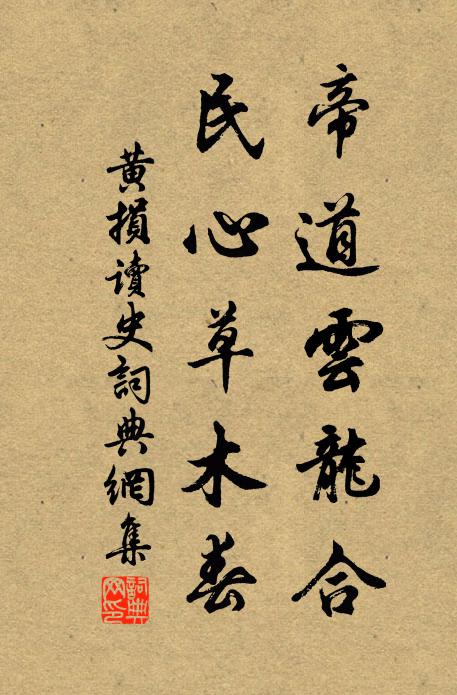 帝道雲龍合
民心草木春
黄損讀史詞典網集
詞典网印